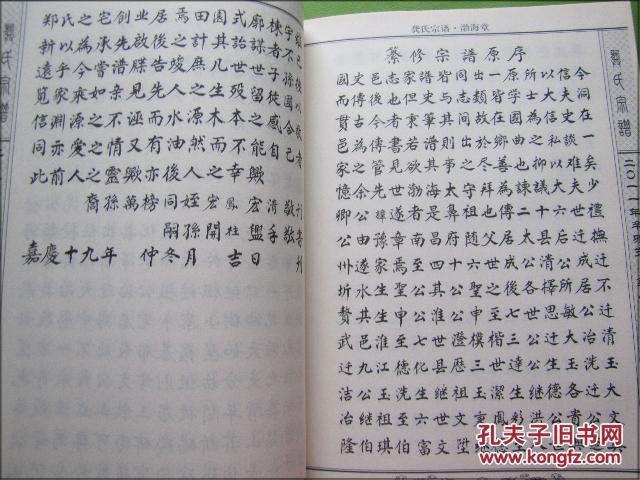 龚氏宗谱·渤海堂
纂修宗譜原序
國史邑志家譜皆同出一原所以信今
而傳後也但史与志類皆學士大夫洞
貫古今者秉筆其間故在國為信史在
邑為傳書若譜則出於鄉曲之私談一
家之管見欲其事之尽善也抑以难矣
憶余先世渤海太守拜為諫議大夫少
卿公諱遂者是鼻祖也傳二十六世禮
公由豫章南昌府随父居后县迁撫
州遂家焉至四十六世成公清公迁
圻水生聖公其公聖之後各擇所居不
贅其生申公淮公申至七世思敏公迁
武邑淮至七世澄模楷三公迁大冶清
迁九江德化县歷三世達公生玉洗玉
洁公玉洗生继祖玉潔生继德各迁大
冶继祖至六世文鳳彩洪公貴公文
隆伯琪伯富文陞继
龚氏宗譜
郑氏之宅创业居焉田園式廓棟宇
新以為承先啟後之圖詒謀者不
遠乎今嘗譜牒告竣庶几世世子孫
覓家乘如亲見先人之生殁留
信淵源之不誣而水源木本之感自
同亦爱之情又有油然而不能自已者
此前人之靈厥亦後人之幸厥
裔孫萬榜同姪宏鳳宏清敬刊
嗣孫開柱興手敬書
嘉慶十九年 仲冬月吉日
孔夫子旧书网
www.kongfz.com